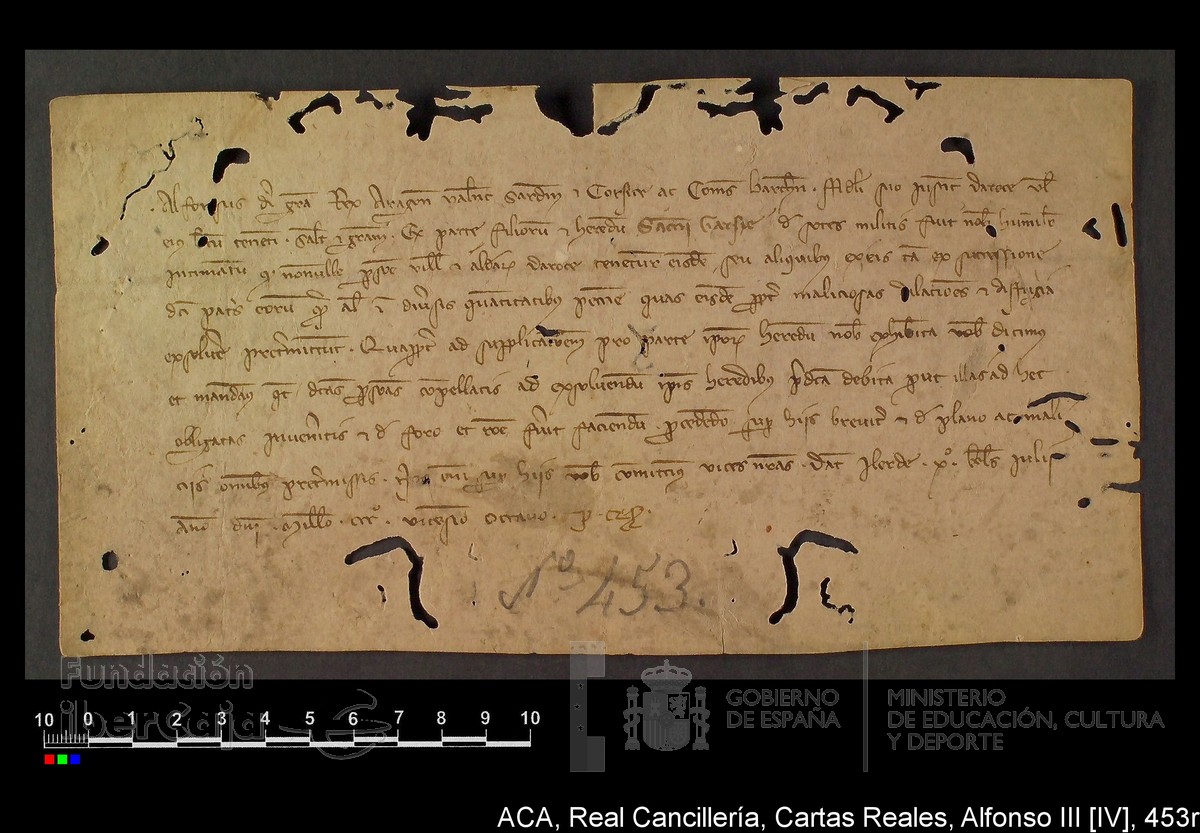 Alfonsus dei gra Rex Aragon Valent Sardin et Corsice ac Comes Barchn. Fideli suo Justic Daroce vel
eius locum tenenti. Salt et gram. Ex parte filiorum et heredum Sancii Garsie de militis fuit nobis humilit
intimatum quod nonnulle psone ville et aldear Daroce tenentur eisdem seu aliquibus ex eis tam ex successione
dci patris eorum quam al in diversis quantitatibus peccunie quas eisdem ppt maliciosas dilaciones et diffugia
exsolvere pretermittunt. Quappt ad supplicacionem pro parte ipor heredum nob exhibitam vob dicimus
et mandamus qt dictas psonas compellatis ad exsolvendum ipis heredibus pdcta debita prout illas ad hec
obligatas inveneritis et de foro et rone fuerit faciendum procedendo super hiis breviter et de plano ac mali
ciis omnibus pretermissis. Nos enim super hiis vob comittimus vices nras. Dat Ilerde. xº. kls Julii
Anno dni. Millo. CCCº. vicesimo octavo.
Nº 453.
Fundación
iberCaja
10 0 1 2 3 4 5 6 7 8 9 10
GOBIERNO
DE ESPAÑA
MINISTERIO
DE EDUCACIÓN, CULTURA
Y DEPORTE
ACA, Real Cancillería, Cartas Reales, Alfonso III [IV], 453r